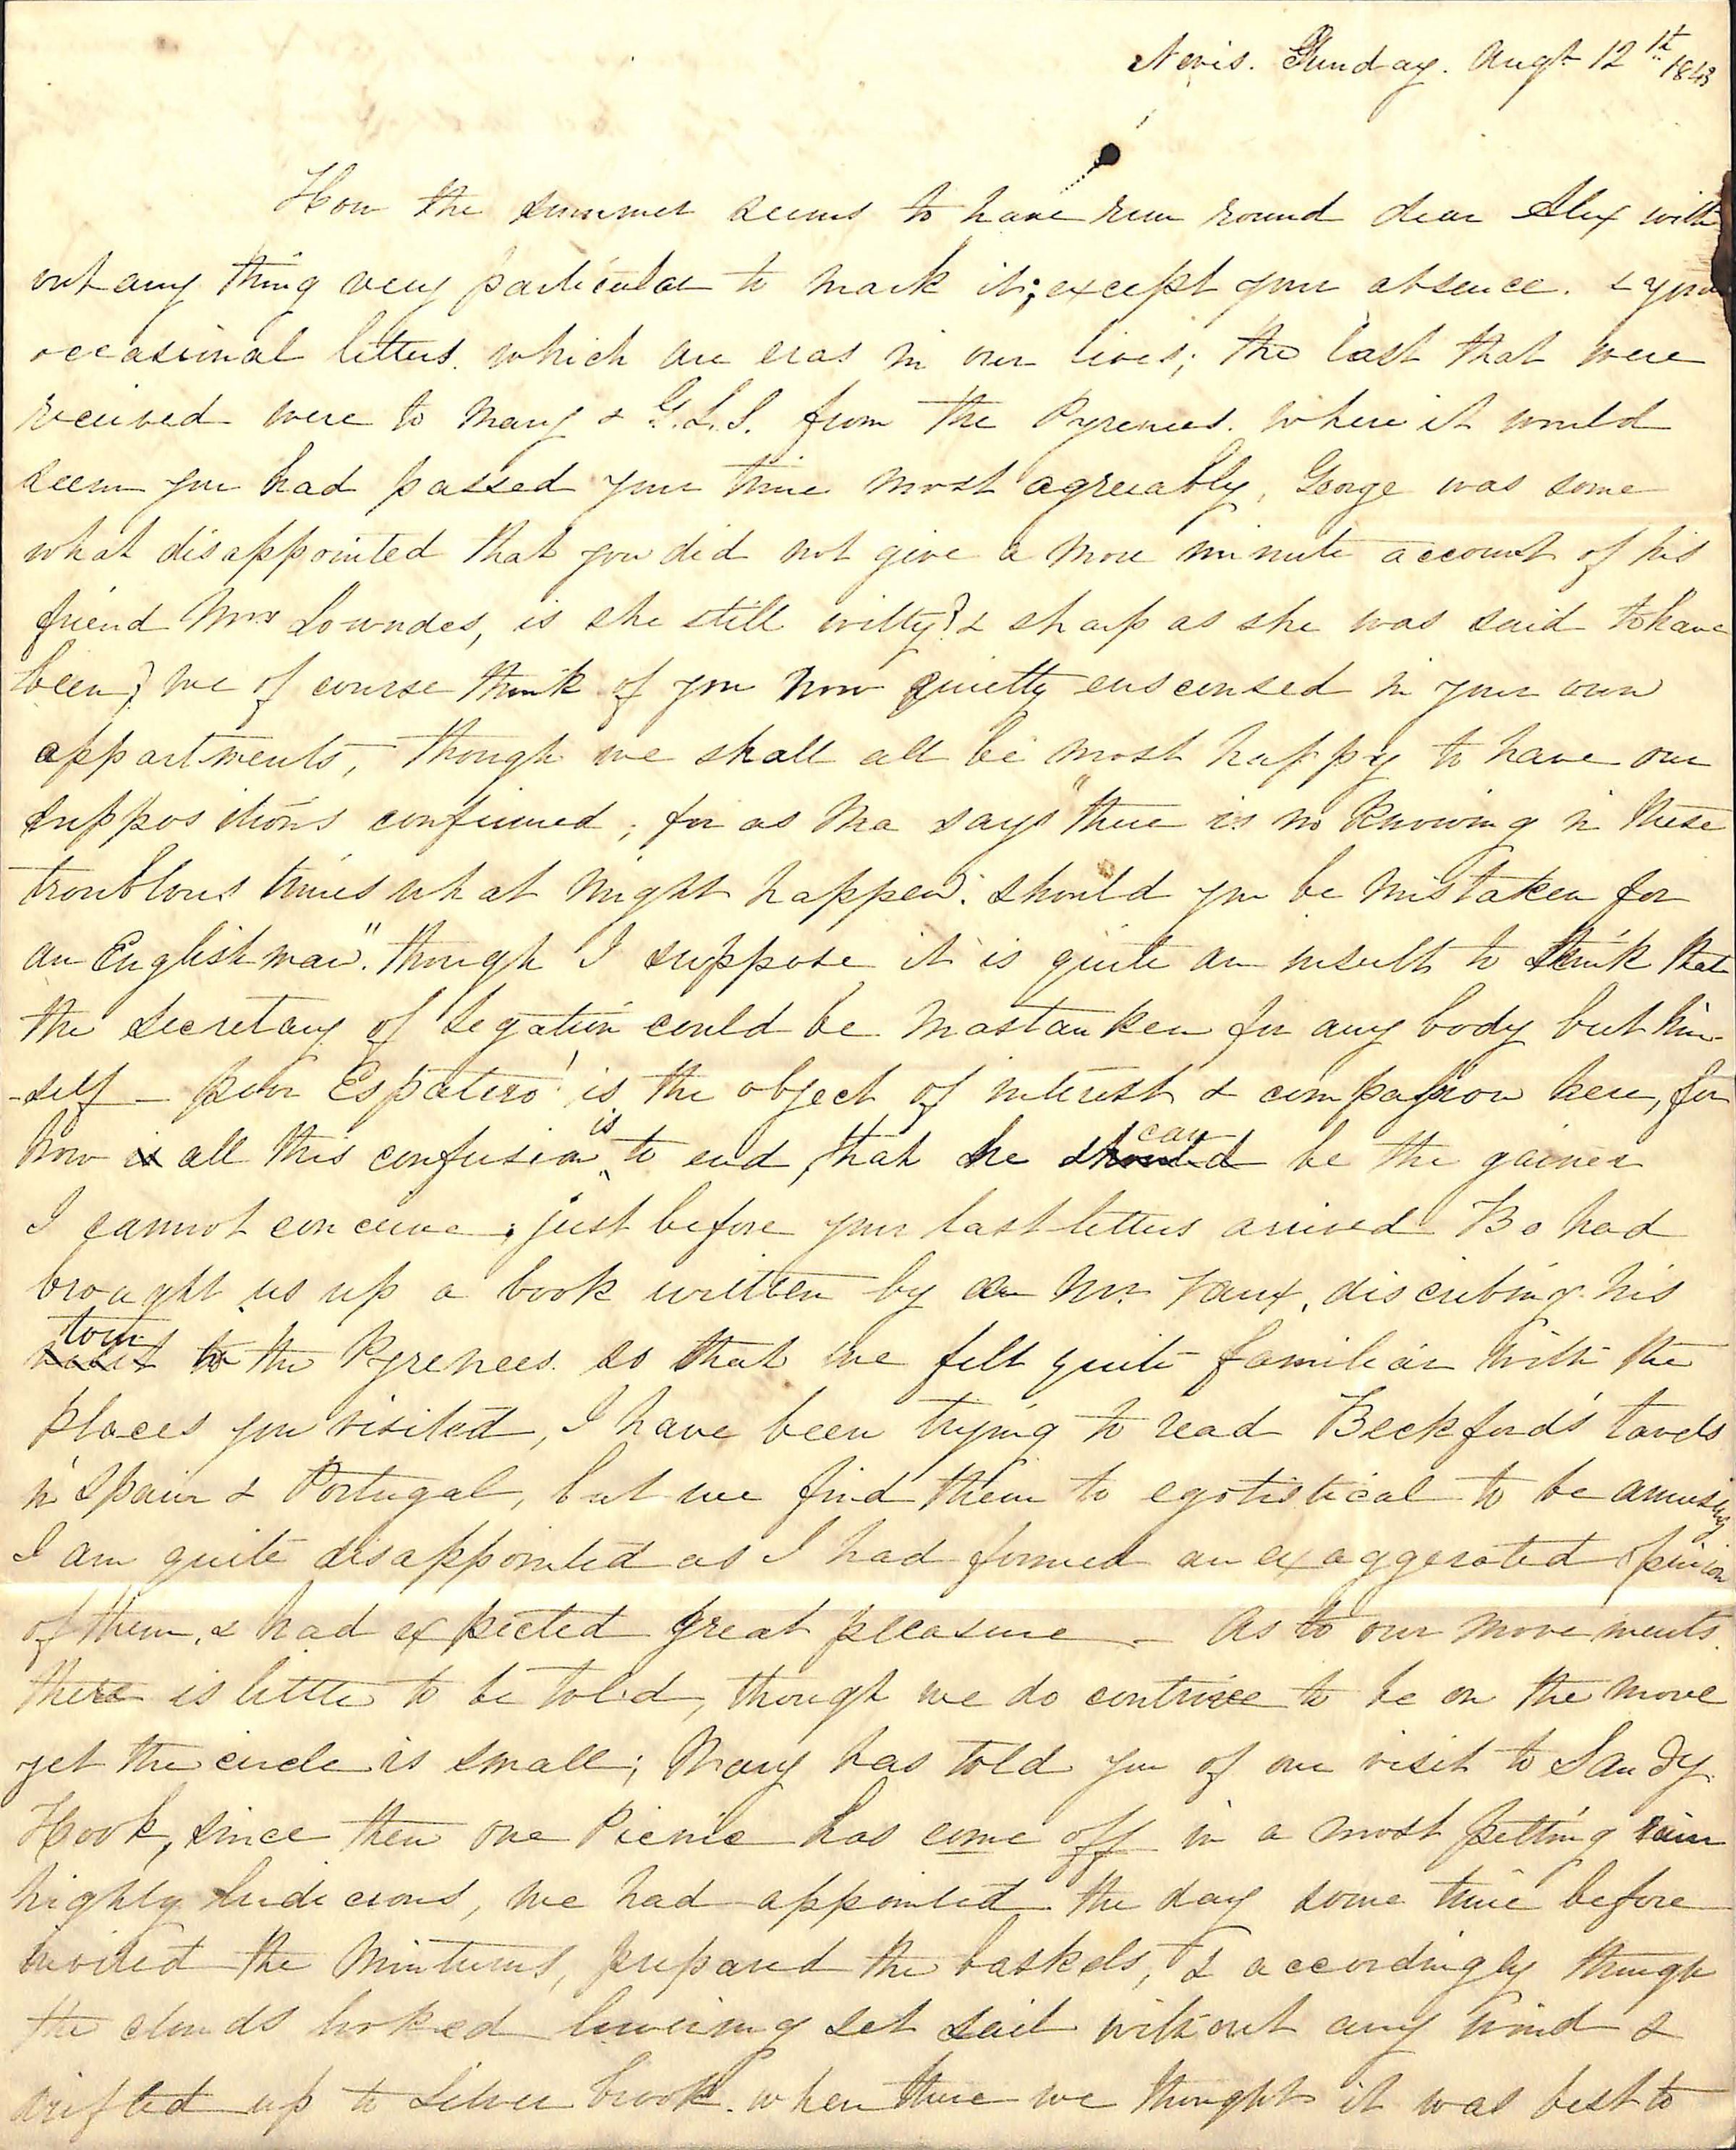 Nevis. Sunday. Augt 12th 1843
How the summer seems to have run round dear Alex with
out any thing very particular to mark it; except your absence. & your
occasional letters. which are eras in our lives; the last that were
received were to Mary & G.L.S. from the Pyrenees. where it would
seem you had passed your time most agreeably, George was some
what disappointed that you did not give a more minute account of his
friend Mrs Lowndes, is she still witty? & sharp as she was said to have
been? we of course think of you now quietly ensconsed in your own
appartments, though we shall all be most happy to have our
suppositions confirmed; for as Ma says "there is no knowing in these
troublous times what might happen. should you be mistaken for
an Englishman". though I suppose it is quite an insult to think that
the Secretary of Legation could be mastanken for any body but him-
-self – poor Espatero' is the object of interest & compassion here, for
how is all this confusion is to end, that he should can be the gainer
I cannot conceive; just before your last letters arrived Bo had
brought us up a book written by an Mr. Vaux, discribing his
tour to the Pyrenees. so that we felt quite familiar with the
places you visited, I have been trying to read Beckford's tavels
in Spain & Portugal, but we find them to egotistical to be amusing
I am quite disappointed as I had formed an exaggerated opinion
of them, & had expected great pleasure – As to our movements.
there is little to be told, though we do contrive to be on the move
yet the circle is small; Mary has told you of our visit to Sandy
Hook, since then one Picnic has come off in a most pelting rain
highly ludicrous, we had appointed the day some time before
invited the Minturns, prepared the baskets, & accordingly though
the clouds looked lowering set sail without any wind &
drifted up to Silver brook. when there we thought it was best to